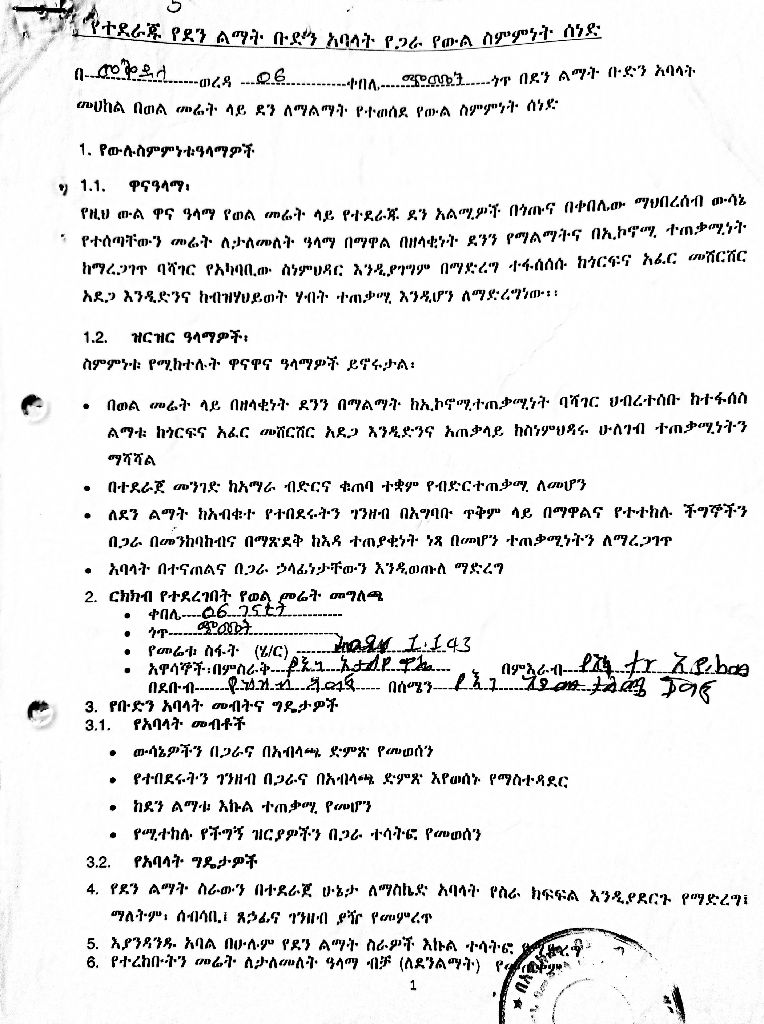 የተደራጁ የደን ልማት ቡድን አባላት የጋራ የውል ስምምነት ሰነድ
በ መቅደላ ወረዳ 06 ቀበሌ ጎጥ በደን ልማት ቡድን አባላት
መሀከል በወል መሬት ላይ ደን ለማልማት የተወሰደ የውል ስምምነት ሰነድ
1. የውሉስምምነቱዓላማዎች
1.1. ዋናዓላማ፡
የዚህ ውል ዋና ዓላማ የወል መሬት ላይ የተደራጁ ደን አልሚዎች በጎጡና በቀበሌው ማህበረሰብ ውሳኔ
የተሰጣቸውን መሬት ለታለመለት ዓላማ በማዋል በዘላቂነት ደንን የማልማትና በኢኮኖሚ ተጠቃሚነት
ከማረጋገጥ ባሻገር የአካባቢው ስነምህዳር እንዲያገግም በማድረግ ተፋሰሰሱ ከጎርፍና አፈር መሸርሸር
አደጋ እንዲድንና ከብዝሃህይወት ሃብት ተጠቃሚ እንዲሆን ለማድረግነው፡፡
1.2. ዝርዝር ዓላማዎች፡
ስምምነቱ የሚከተሉት ዋናዋና ዓላማዎች ይኖሩታል፡
• በወል መሬት ላይ በዘላቂነት ደንን በማልማት ከኢኮኖሚተጠቃሚነት ባሻገር ህብረተሰቡ ከተፋሰስ
ልማቱ ከጎርፍና አፈር መሸርሸር አደጋ እንዲድንና አጠቃላይ ከስነምህዳሩ ሁለገብ ተጠቃሚነትን
ማሻሻል
• በተደራጀ መንገድ ከአማራ ብድርና ቁጠባ ተቋም የብድርተጠቃሚ ለመሆን
• ለደን ልማት ከአብቁተ የተበደሩትን ገንዘብ በአግባቡ ጥቅም ላይ በማዋልና የተተከሉ ችግኞችን
በጋራ በመንከባከብና በማጽደቅ ከእዳ ተጠያቂነት ነጻ በመሆን ተጠቃሚነትን ለማረጋገጥ
• አባላት በተናጠልና በጋራ ኃላፊነታቸውን እንዲወጡለ ማድረግ
2. ርክክብ የተደረገበት የወል መሬት መግለጫ
• ቀበሌ 06
• ጎጥ
• የመሬቱ ስፋት (ሄ/ር) 1.143
• አዋሳኞች፡በምስራቅ በምእራብ
በደቡብ በሰሜን
3. የቡድን አባላት መብትና ግዴታዎች
3.1. የአባላት መብቶች
• ውሳኔዎችን በጋራና በአብላጫ ድምጽ የመወሰን
• የተበደሩትን ገንዘብ በጋራና በአብላጫ ድምጽ እየወሰኑ የማስተዳደር
• ከደን ልማቱ እኩል ተጠቃሚ የመሆን
• የሚተከሉ የችግኝ ዝርያዎችን በጋራ ተሳትፎ የመወሰን
3.2. የአባላት ግዴታዎች
4. የደን ልማት ስራውን በተደራጀ ሁኔታ ለማስኬድ አባላት የስራ ክፍፍል እንዲያደርጉ የማድረግ፤
ማለትም፡ ሰብሳቢ፤ ጸኃፊና ገንዘብ ያዥ የመምረጥ
5. እያንዳንዱ አባል በሁሉም የደን ልማት ስራዎች እኩል ተሳትፎ
6. የተረከቡትን መሬት ለታለመለት ዓላማ ብቻ (ለደንልማት)
1